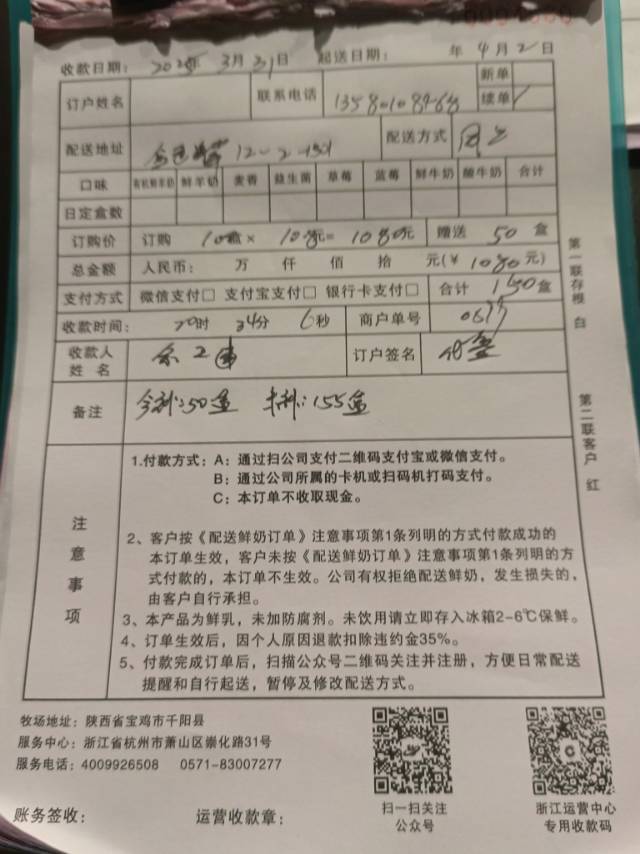 收款日期： 2025年 3月31日 起送日期： 年 4月2日
订户姓名 联系电话 新单
续单✓
配送地址 12-2-1501 配送方式
口味 有机鲜羊奶 鲜羊奶 麦香 益生菌 草莓 蓝莓 鲜牛奶 酸牛奶 合计
日定盒数
订购价 订购 100盒× 10.8元= 1080元 赠送 50 盒
总金额 人民币： 万 仟 佰 拾 元(￥1080元)
支付方式 微信支付□ 支付宝支付□ 银行卡支付□ 合计 150盒
收款时间： 20时 24分 6秒 商户单号
收款人姓名 订户签名 代签
备注 今剩：50盒 卡剩：155盒
注意事项
1.付款方式：A：通过扫公司支付二维码支付宝或微信支付。
B：通过公司所属的卡机或扫码机打码支付。
C：本订单不收取现金。
2、客户按《配送鲜奶订单》注意事项第1条列明的方式付款成功的
本订单生效，客户未按《配送鲜奶订单》注意事项第1条列明的方
式付款的，本订单不生效。公司有权拒绝配送鲜奶，发生损失的，
由客户自行承担。
3、本产品为鲜乳，未加防腐剂。未饮用请立即存入冰箱2-6℃保鲜。
4、订单生效后，因个人原因退款扣除违约金35%。
5、付款完成订单后，扫描公众号二维码关注并注册，方便日常配送
提醒和自行起送，暂停及修改配送方式。
第一联存根 白
第二联客户 红
牧场地址：陕西省宝鸡市千阳县
服务中心：浙江省杭州市萧山区崇化路31号
服务电话：4009926508 0571-83007277
扫一扫关注
公众号
浙江运营中心
专用收款码
账务签收： 运营收款章：